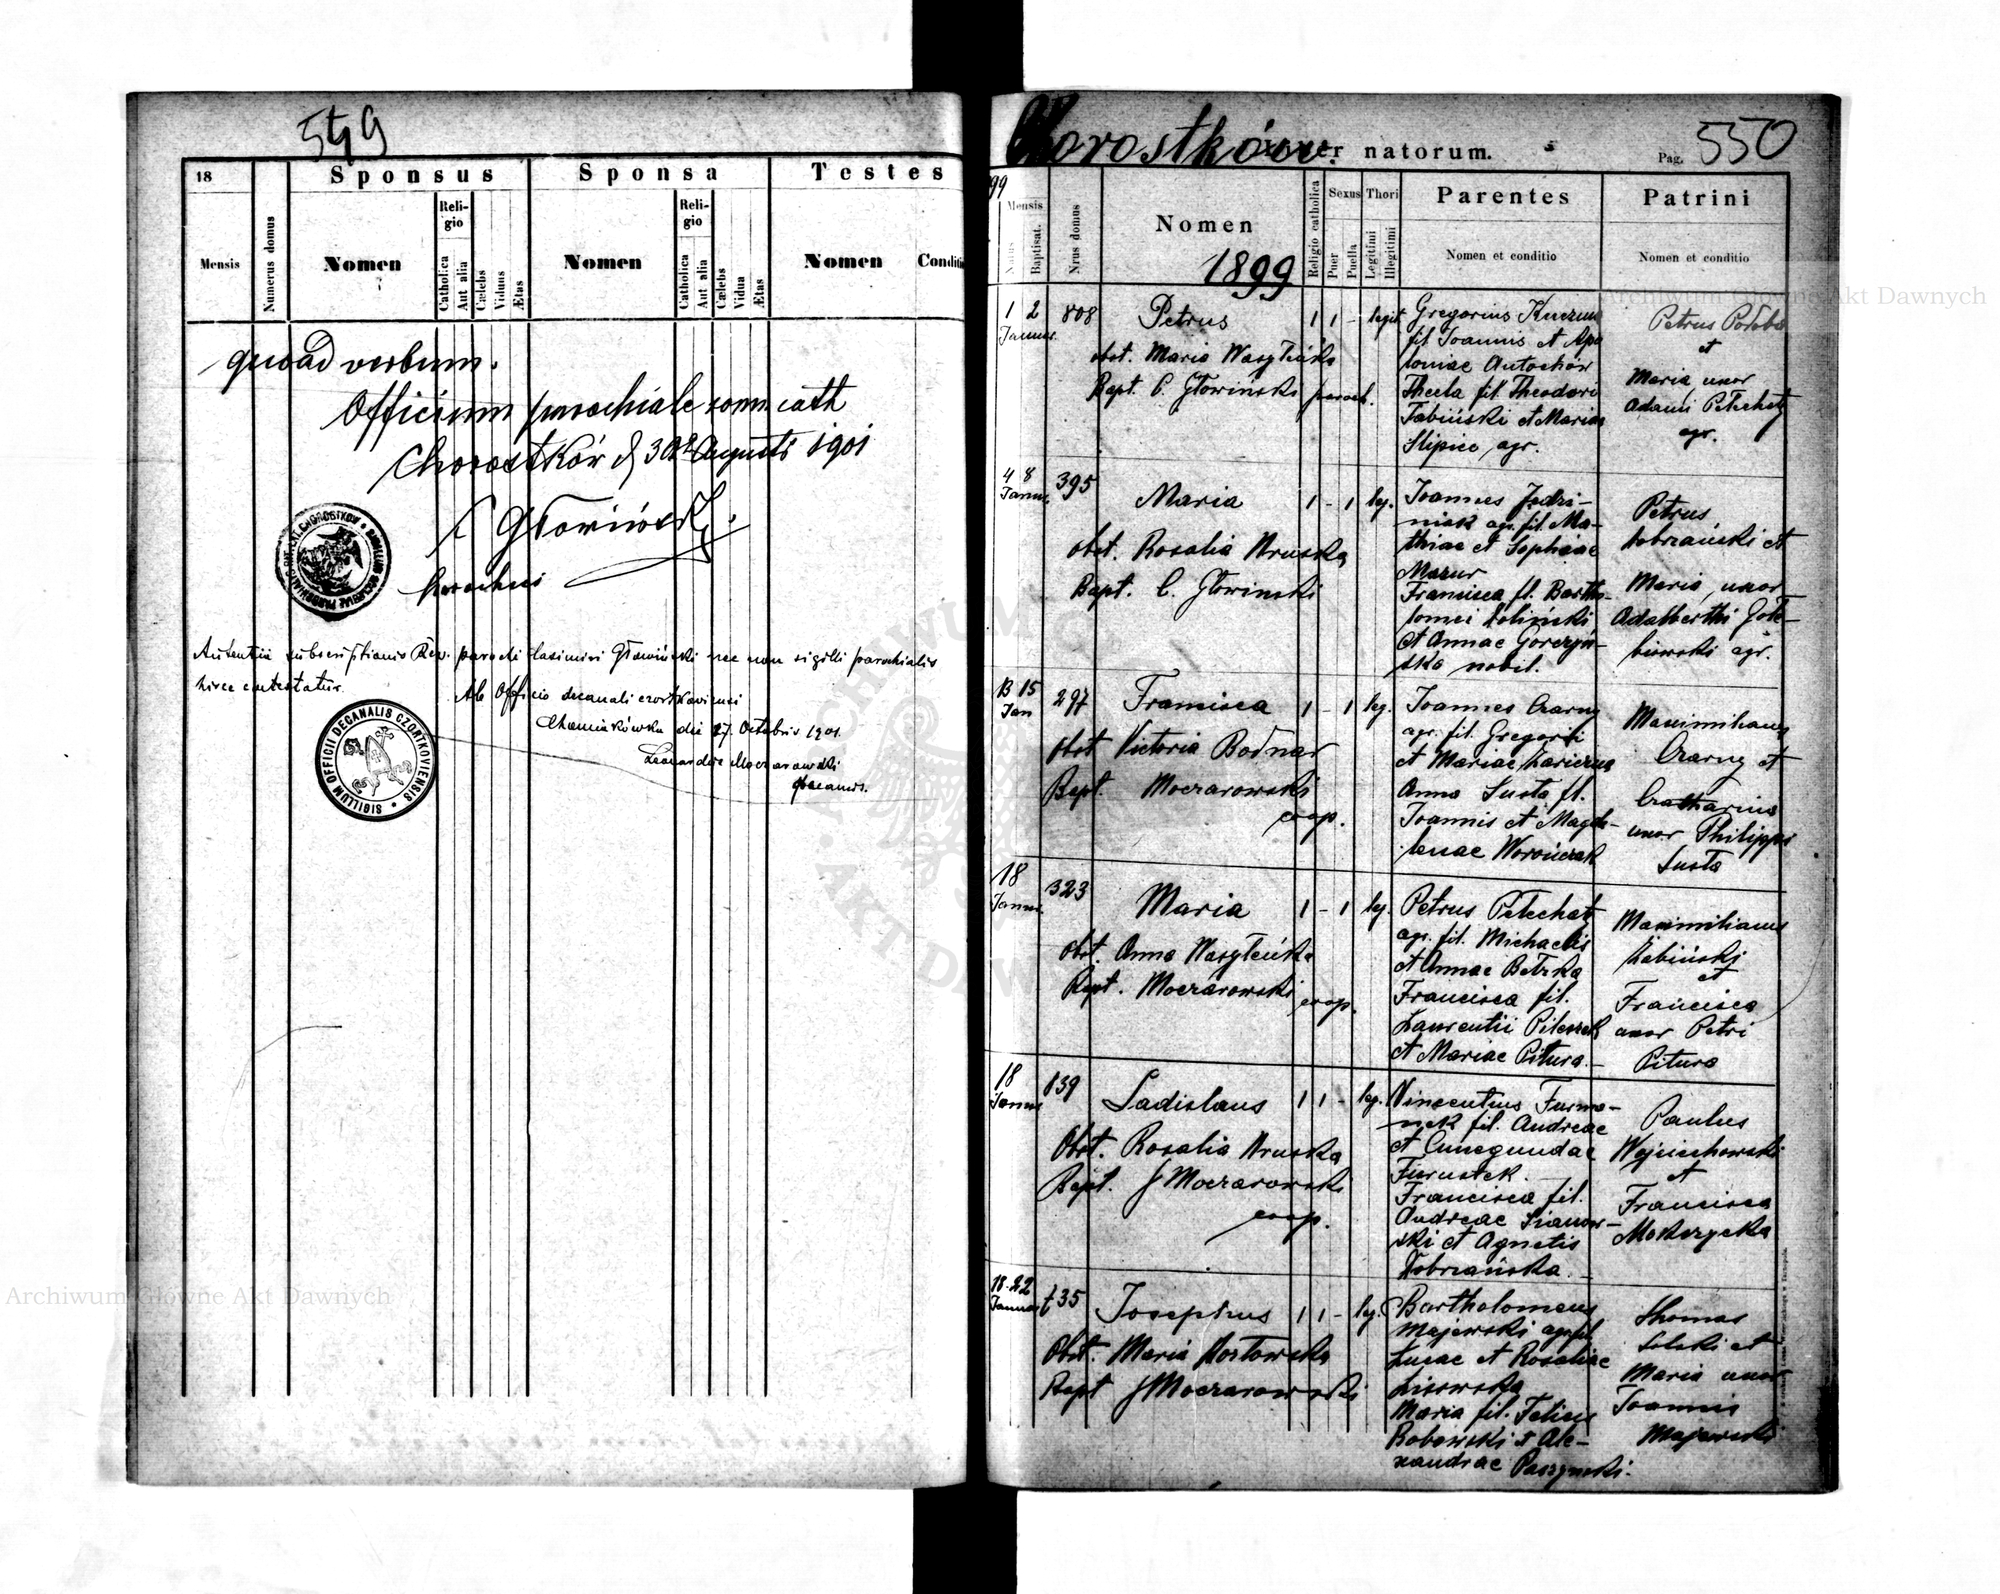 549
18
Sponsus
Sponsa
Testes
Mensis
Numerus domus
Nomen
Religio
Catholica
Aut alia
Cælebs
Viduus
Ætas
Nomen
Religio
Catholica
Aut alia
Cælebs
Vidua
Ætas
Nomen
Conditio
quoad verbum.
Officium parochiale rom cath
Chorostków d 30 Augusti 1901
Głowiński
parochus
subscriptionis Rev. parochi Casimiri Głowiński nec non sigilli parochialis
hisce contestatur.
Ab Officio decanali czortkoviensi
die 27. Octobris 1901.
Decanus.
SIGILLUM OFFICII DECANALIS CZORTKOVIENSIS
Chorostków.
natorum.
Pag. 550
99
Mensis
Natus
Baptisat.
Nrus domus
Nomen
1899
Religio catholica
Sexus
Puer
Puella
Thori
Legitimi
Illegitimi
Parentes
Nomen et conditio
Patrini
Nomen et conditio
1 2
808
Petrus
1 1 -
legit.
Gregorius
fil Joannis et Apo
loniae
Thecla fil. Theodori
et Maria
agr.
Petrus
et
Maria uxor
Adami Petechaty
agr.
obst. Maria Wasyleńska
Bapt. C. Głowiński paroch.
4 8
Januar.
395
Maria
1 - 1
leg.
Joannes Jedri-
niak agr. fil. Ma-
thiae et Sophiae
Mazur
Francisca fil. Bartho-
lomei
et Annae Gorczyń-
ska nobil.
Petrus
Dobrzański et
Maria uxor
Adalberthi Gołe-
biowski agr.
obst. Rosalia Hruska
Bapt. C. Głowinski
13 15
Jan
297
Francisca
1 - 1
leg.
Joannes Czarny
agr. fil. Gregorii
et Mariae
Anna Susta fil.
Joannis et Magda-
lenae Worończak
Maximilianus
Czarny et
Catharina
uxor Philippi
Susta
obst Victoria Bodnar
Bapt. Moczarowski
coop.
18
Januar.
323
Maria
1 - 1
leg.
Petrus Petechaty
agr. fil. Michaelis
et Annae
Francisca fil.
Laurentii
et Mariae Pitura
Maximilianus
et
Francisca
uxor Petri
Pitura
obst. Anna Wasyleńska
Bapt. Moczarowski coop.
18
Januar
139
Ladislaus
1 1 -
leg.
Vincentius Furma-
nek fil. Andreae
et Cunegundae
Francisca fil.
Andreae
et Agnetis
Dobrzańska
Paulus
Wojciechowski
et
Francisca
Mokrzycka
Obst. Rosalia Hruska
Bapt. J Moczarowski
coop.
18. 22
Januar
Josephus
1 1 -
leg.
Bartholomeus
Majewski agr fil
Lucae et Rosaliae
Lisowska
Maria fil. Felicis
Bobowski et Ale-
xandrae
Thomas
Solski et
Maria uxor
Joannis
Majewski
Obst. Maria
Bapt J Moczarowski
Archiwum Główne Akt Dawnych
Archiwum Główne Akt Dawnych
ARCHIWUM GŁÓWNE AKT DAWNYCH